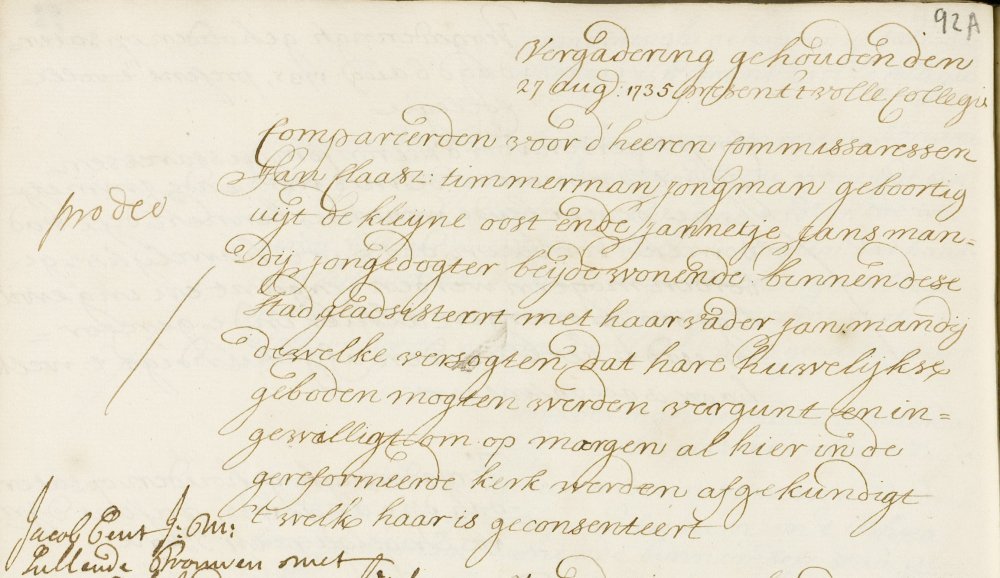 92A
Vergadering gehouden den
27 aug: 1735 present t volle Collegie
Compareerden voor d'heeren Commissaressen
Jan Claasz: timmerman jongman geboortig
pro deo
uijt de kleijne oost ende jannetje jans man=
dij jongedogter beijde wonende binnen dese
stad, geadsisteert met haar vader jan mandij
dewelke versogten dat hare huwelijkse
geboden mogten werden vergunt en in=
gewilligt om op margen al hier in de
gereformeerde kerk werden afgekundigt
't welk haar is geconsenteert
Jacob J: M:
Sullende Trouwen met